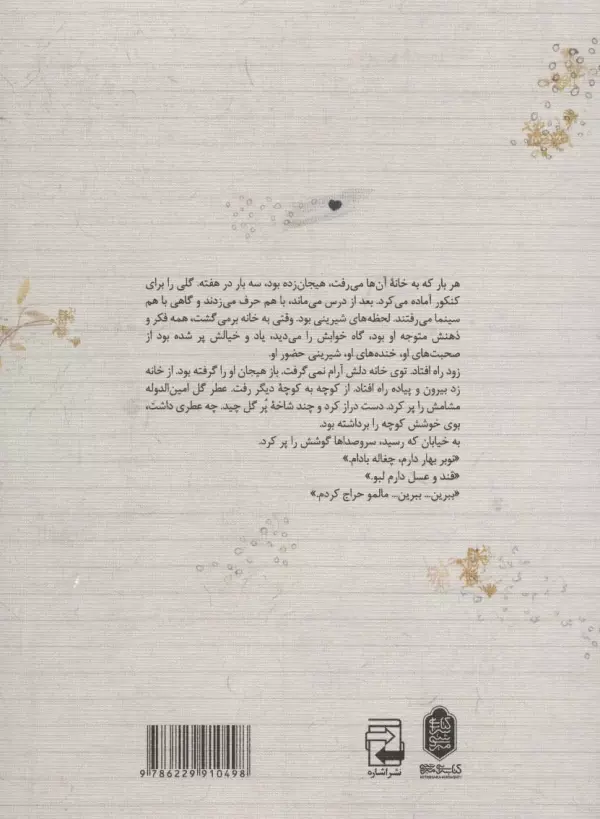 هر بار که به خانهٔ آن‌ها می‌رفت، هیجان‌زده بود، سه بار در هفته. گلی را برای
کنکور آماده می‌کرد. بعد از درس می‌ماند، با هم حرف می‌زدند و گاهی با هم
سینما می‌رفتند. لحظه‌های شیرینی بود. وقتی به خانه برمی‌گشت، همه فکر و
ذهنش متوجه او بود، گاه خوابش را می‌دید، یاد و خیالش پر شده بود از
صحبت‌های او، خنده‌های او، شیرینی حضور او.
زود راه افتاد. توی خانه دلش آرام نمی‌گرفت. باز هیجان او را گرفته بود. از خانه
زد بیرون و پیاده راه افتاد. از کوچه به کوچهٔ دیگر رفت. عطر گل امین‌الدوله
مشامش را پر کرد. دست دراز کرد و چند شاخهٔ پُر گل چید. چه عطری داشت،
بوی خوشش کوچه را برداشته بود.
به خیابان که رسید، سروصداها گوشش را پر کرد.
«نوبر بهار دارم، چغاله بادام.»
«قند و عسل دارم لبو.»
«ببرین... ببرین... مالمو حراج کردم.»
نشر اشاره
9 786229 910498